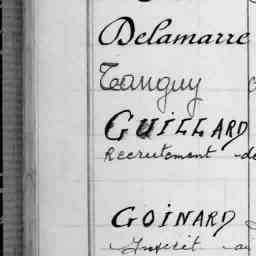 Delamarre
Tanguy
GUILLARD
Recrutement de
GOINARD
Inscrit au